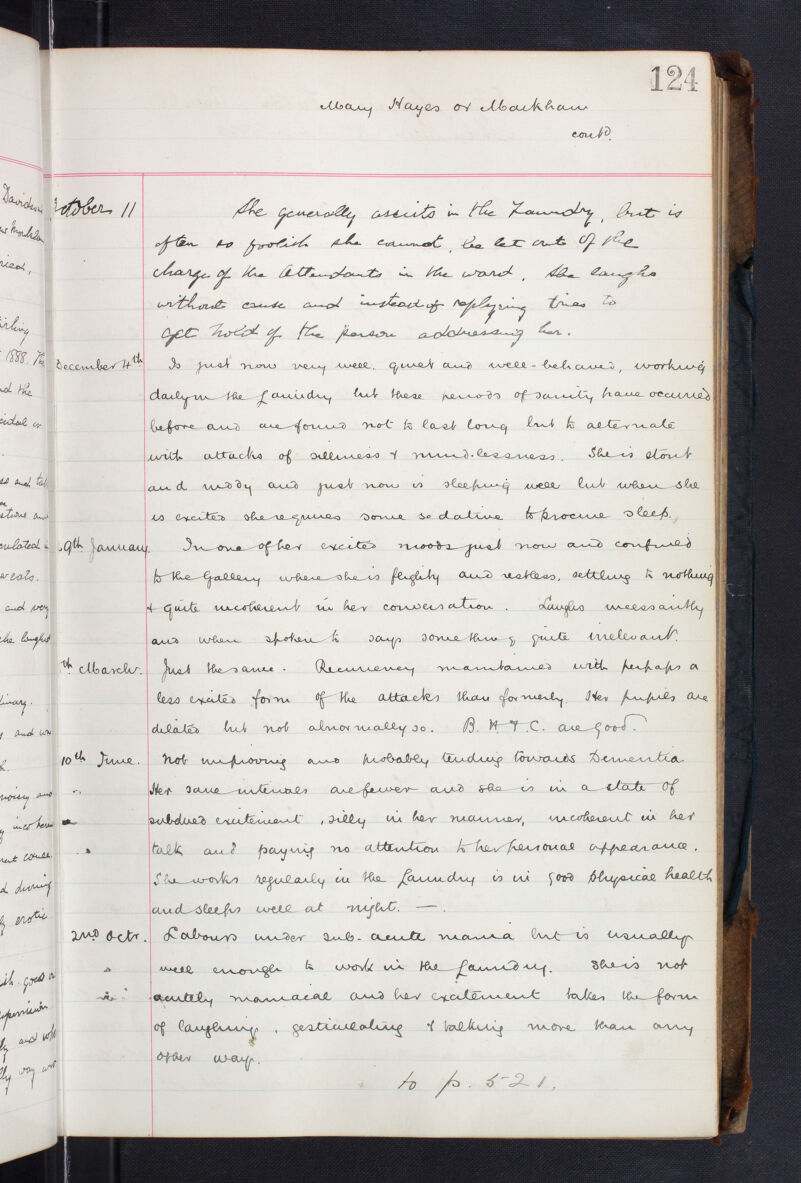 124
Mary Hayes or Markham
contd.
October 11
She generally assists in the Laundry, but is
often so foolish she cannot be let out of the
charge of the Attendants in the ward. She laughs
without cause and instead of replying tries to
get hold of the person addressing her.
December 4th Is just now very well. quiet and well-behaved, working
daily in the Laundry but these periods of sanity have occurred
before and are found not to last long but to alternate
with attacks of silliness & mind-lessness. She is stout
and ruddy and just now is sleeping well but when she
is excited she requires some sedative to procure sleep.
9th January. In one of her excited moods just now and confined
to the Gallery where she is flighty and restless, settling to nothing
& quite incoherent in her conversation. Laughs incessantly
and when spoken to says something quite irrelevant.
th March. Just the same. Recurrency maintained with perhaps a
less excited form of the attacks than formerly. Her pupils are
dilated but not abnormally so. B. H & C. are good.
10th June. Not improving and probably tending towards Dementia
Her sane intervals are fewer and she is in a state of
subdued excitement, silly in her manner, incoherent in her
talk and paying no attention to her personal appearance.
She works regularly in the Laundry is in good physical health
and sleeps well at night. —
2nd Octr. Labours under sub-acute mania but is usually
well enough to work in the Laundry. She is not
acutely maniacal and her excitement takes the form
of laughing, gesticulating & talking more than any
other way.
to p. 521.
Davidson
1888. The
nd the
and very
she laughs
noisy and
during
erotic
and